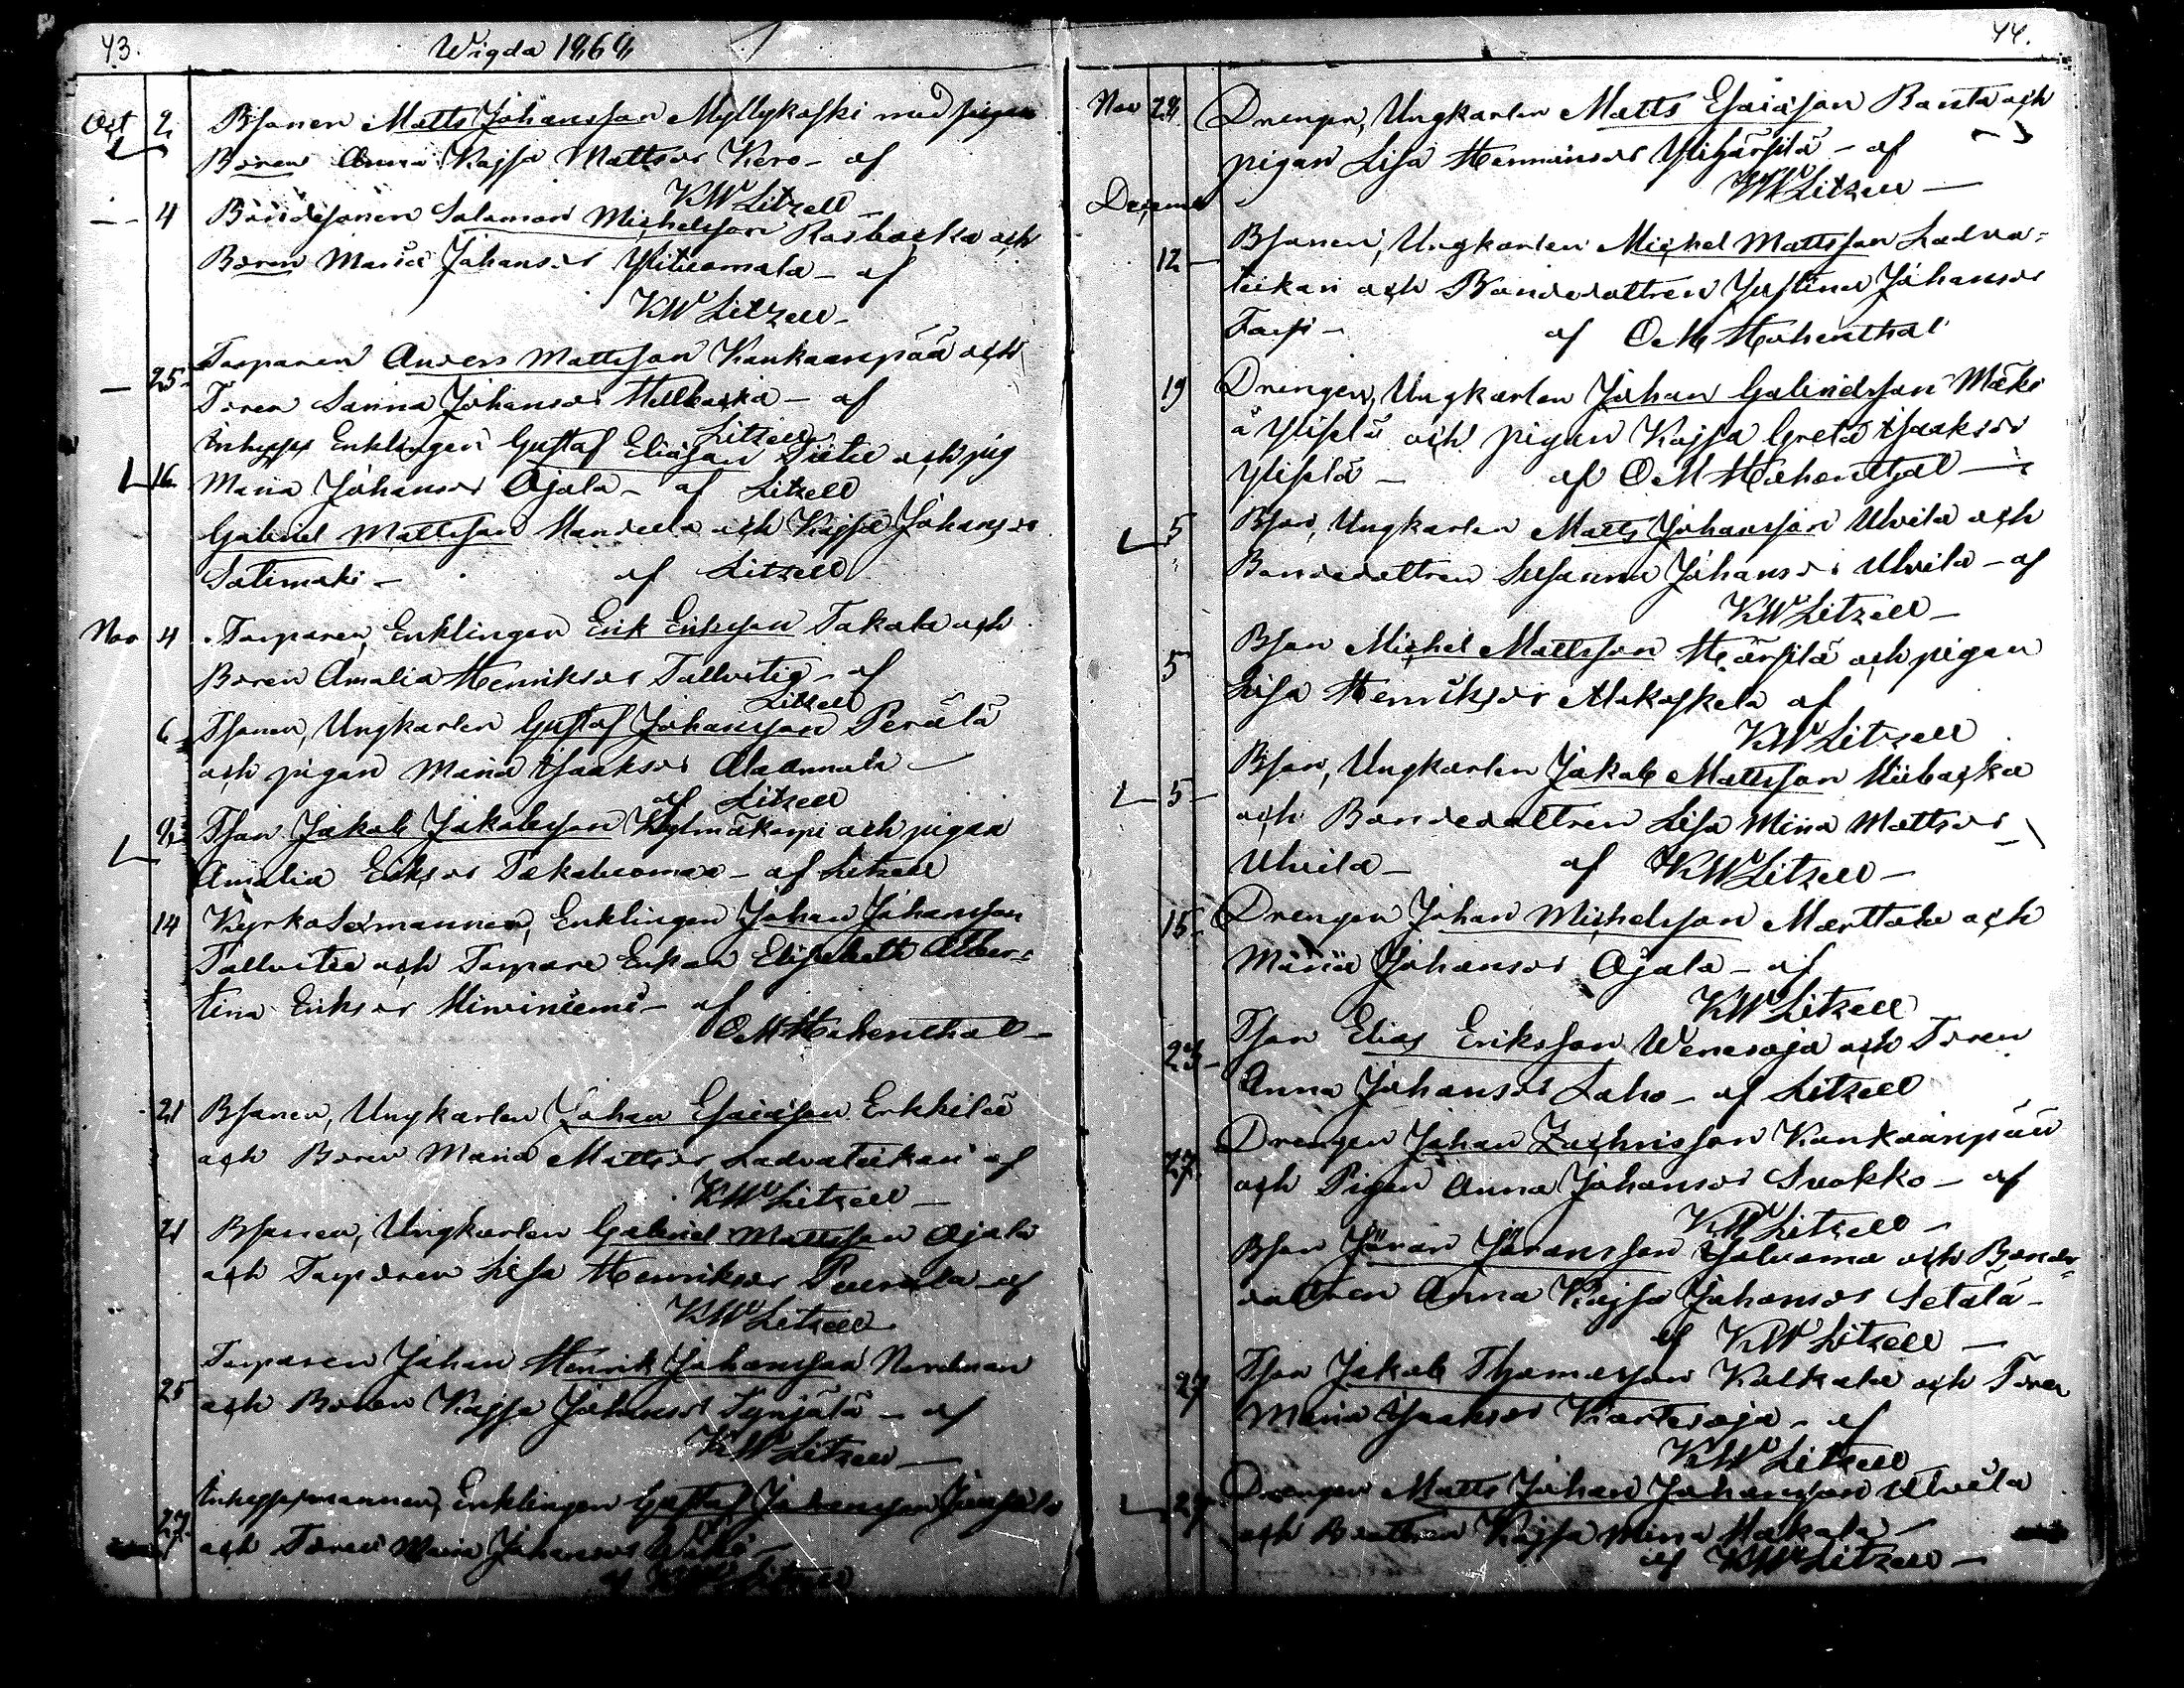 43.
Wigda 1868
Oct 2. Bsonen Matts Johansson Myllykoski med pigan
Boren Anna Kajsa Mattsdr Kero - af
KW Litzell
4 Bondesonen Salomon Michelsson Rasbacka och
Boren Maria Johansdr Ylituomala - af
KW Litzell -
25 Torparen Anders Mattsson Kankaanpää och
Toren Sanna Johansdr Hellbacka - af
Litzell
Inhyses Enklingen Gustaf Eliasson och pig
16. Maria Johansdr Ojala - af Litzell
Gabriel Mattsson Mandela och Kajsa Johansdr
Salimaki - af Litzell
Nov 4 Torparen, Enklingen Erik Eriksson Takala och
Boren Amalia Henriksdr Tallvitig - af
Litzell
6 Tsonen, Ungkarlen Gustaf Johansson Perälä
och pigan Maria Isaaksdr Alaannala -
af Litzell
Tson Jakob Jakobsson Kylmäkorpi och pigan
Amalia Eriksdr Takaluoma - af Litzell
14 Kyrkosexmannen, Enklingen Johan Johansson
Tallvitie och Torpare Enkan Elisabeth Alber=
tina Eriksdr Niiviniemi - af
OM Hohenthal -
21 Bsonen, Ungkarlen Johan Esaiasson Erkkilä
och Boren Maria Mattsdr Ladvateikari af
KW Litzell -
21 Bsonen, Ungkarlen Gabriel Mattsson Ojala
och Torpdren Lisa Henriksdr - af
KW Litzell
25 Torparen Johan Henrik Johansson Nordman
och Boren Kajsa Johansdr Tynjälä - af
KW Litzell -
27. Inhysesmannen, Enklingen Gustaf Johansson
och Toren Maria Johansdr -
af KW Litzell
44.
Nov 28. Drengen, Ungkarlen Matts Esaiasson Ranta och
pigan Lisa Hermansdr Ylihärsilä - af
KW Litzell -
December
12 - Bsonen, Ungkarlen Michel Mattsson Ladva=
teikari och Bondedottren Justina Johansdr
Torsi - af OM Hohenthal
19 Drengen, Ungkarlen Johan Gabrielsson Mäki
å Ylistä och pigan Kajsa Greta Isaaksdr
Ylistä - af OM Hohenthal -
5 Bson, Ungkarlen Matts Johansson Ulvila och
Bondedottren Susanna Johansdr Ulvila - af
KW Litzell -
5 Bson Michel Mattsson Härsilä och pigan
Lisa Henriksdr Alakoskela af
KW Litzell
5 - Bson, Ungkarlen Jakob Mattsson Niibacka
och Bondedottren Lisa Mina Mattsdr -
Ulvila - af KW Litzell -
15 Drengen Johan Michelsson Marttala och
Maria Johansdr Ojala - af
KW Litzell
Tson Elias Eriksson Wenesoja och Toren
Anna Johansdr Laho - af Litzell
27. Drengen Johan Zachrisson Kankaanpää
och Pigan Anna Johansdr Suokko - af
KW Litzell -
Bson Jöran Jöransson Jaluoma och Bonde=
dottren Anna Kajsa Johansdr Setälä -
af KW Litzell -
27 Tson Jakob Thomasson Kalkala och Toren
Maria Isaaksdr - af
KW Litzell
27 Drengen Matts Johan Johansson Ulvila
och Bdottren Kajsa Mina Hakala -
af KW Litzell -